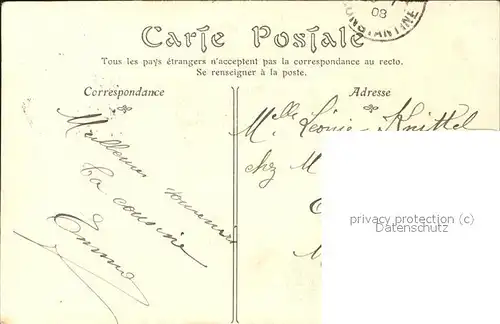 08
CONSTANTINE
Carte Postale
Tous les pays étrangers n'acceptent pas la correspondance au recto.
Se renseigner à la poste.
Correspondance
Meilleurs souvenirs
Ta cousine
Emma
Adresse
Melle Léonie Knittel
chez M
privacy protection (c)
Oldthing.de